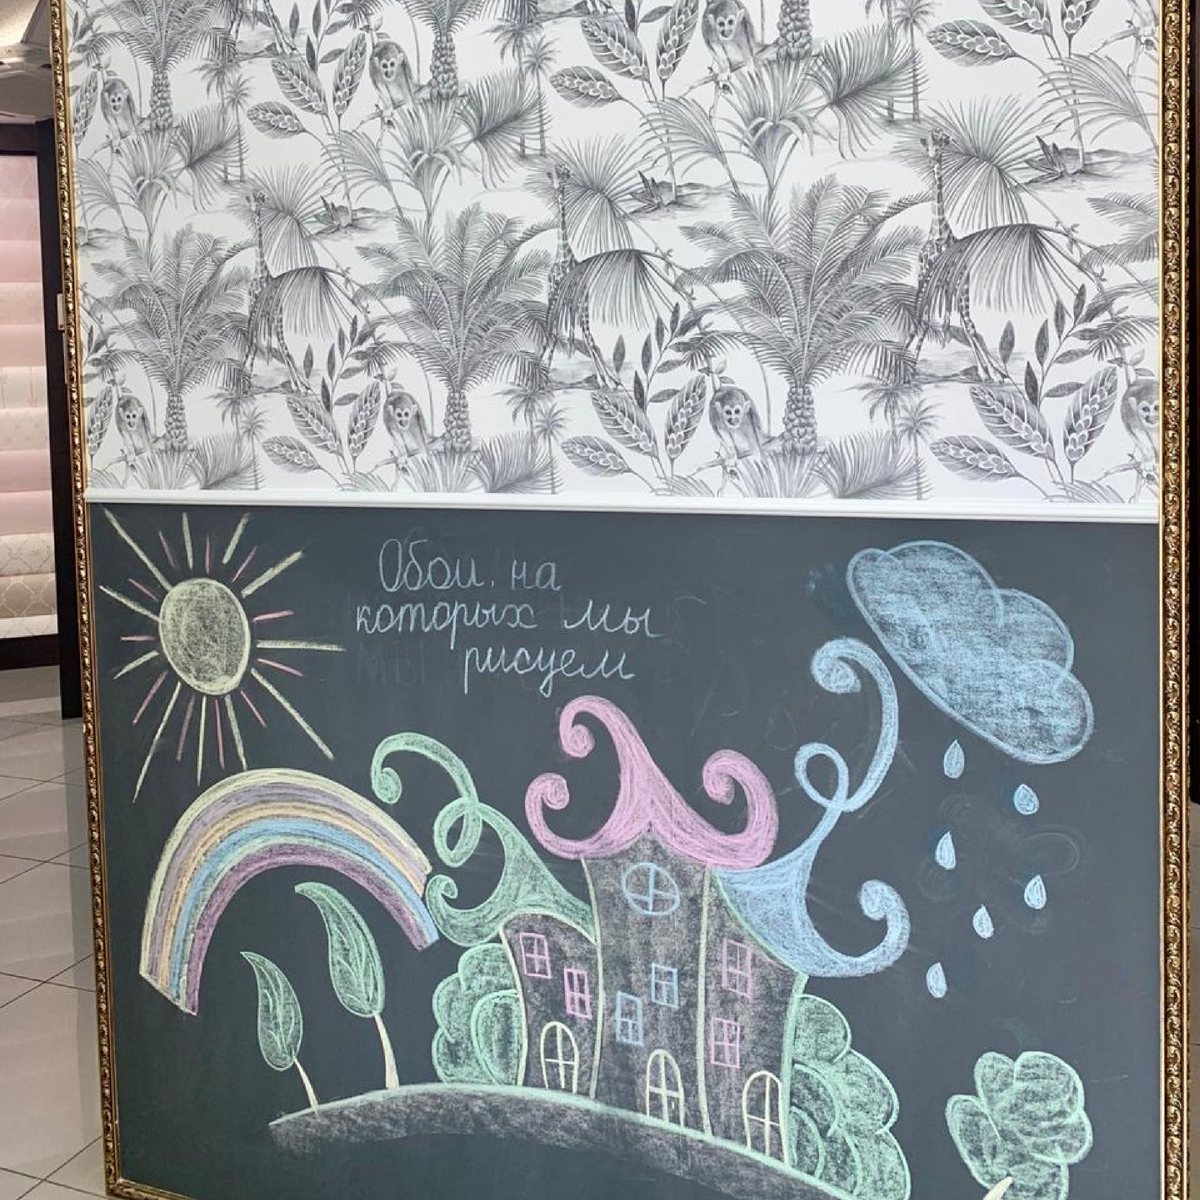 Обои, на
которых мы
рисуем